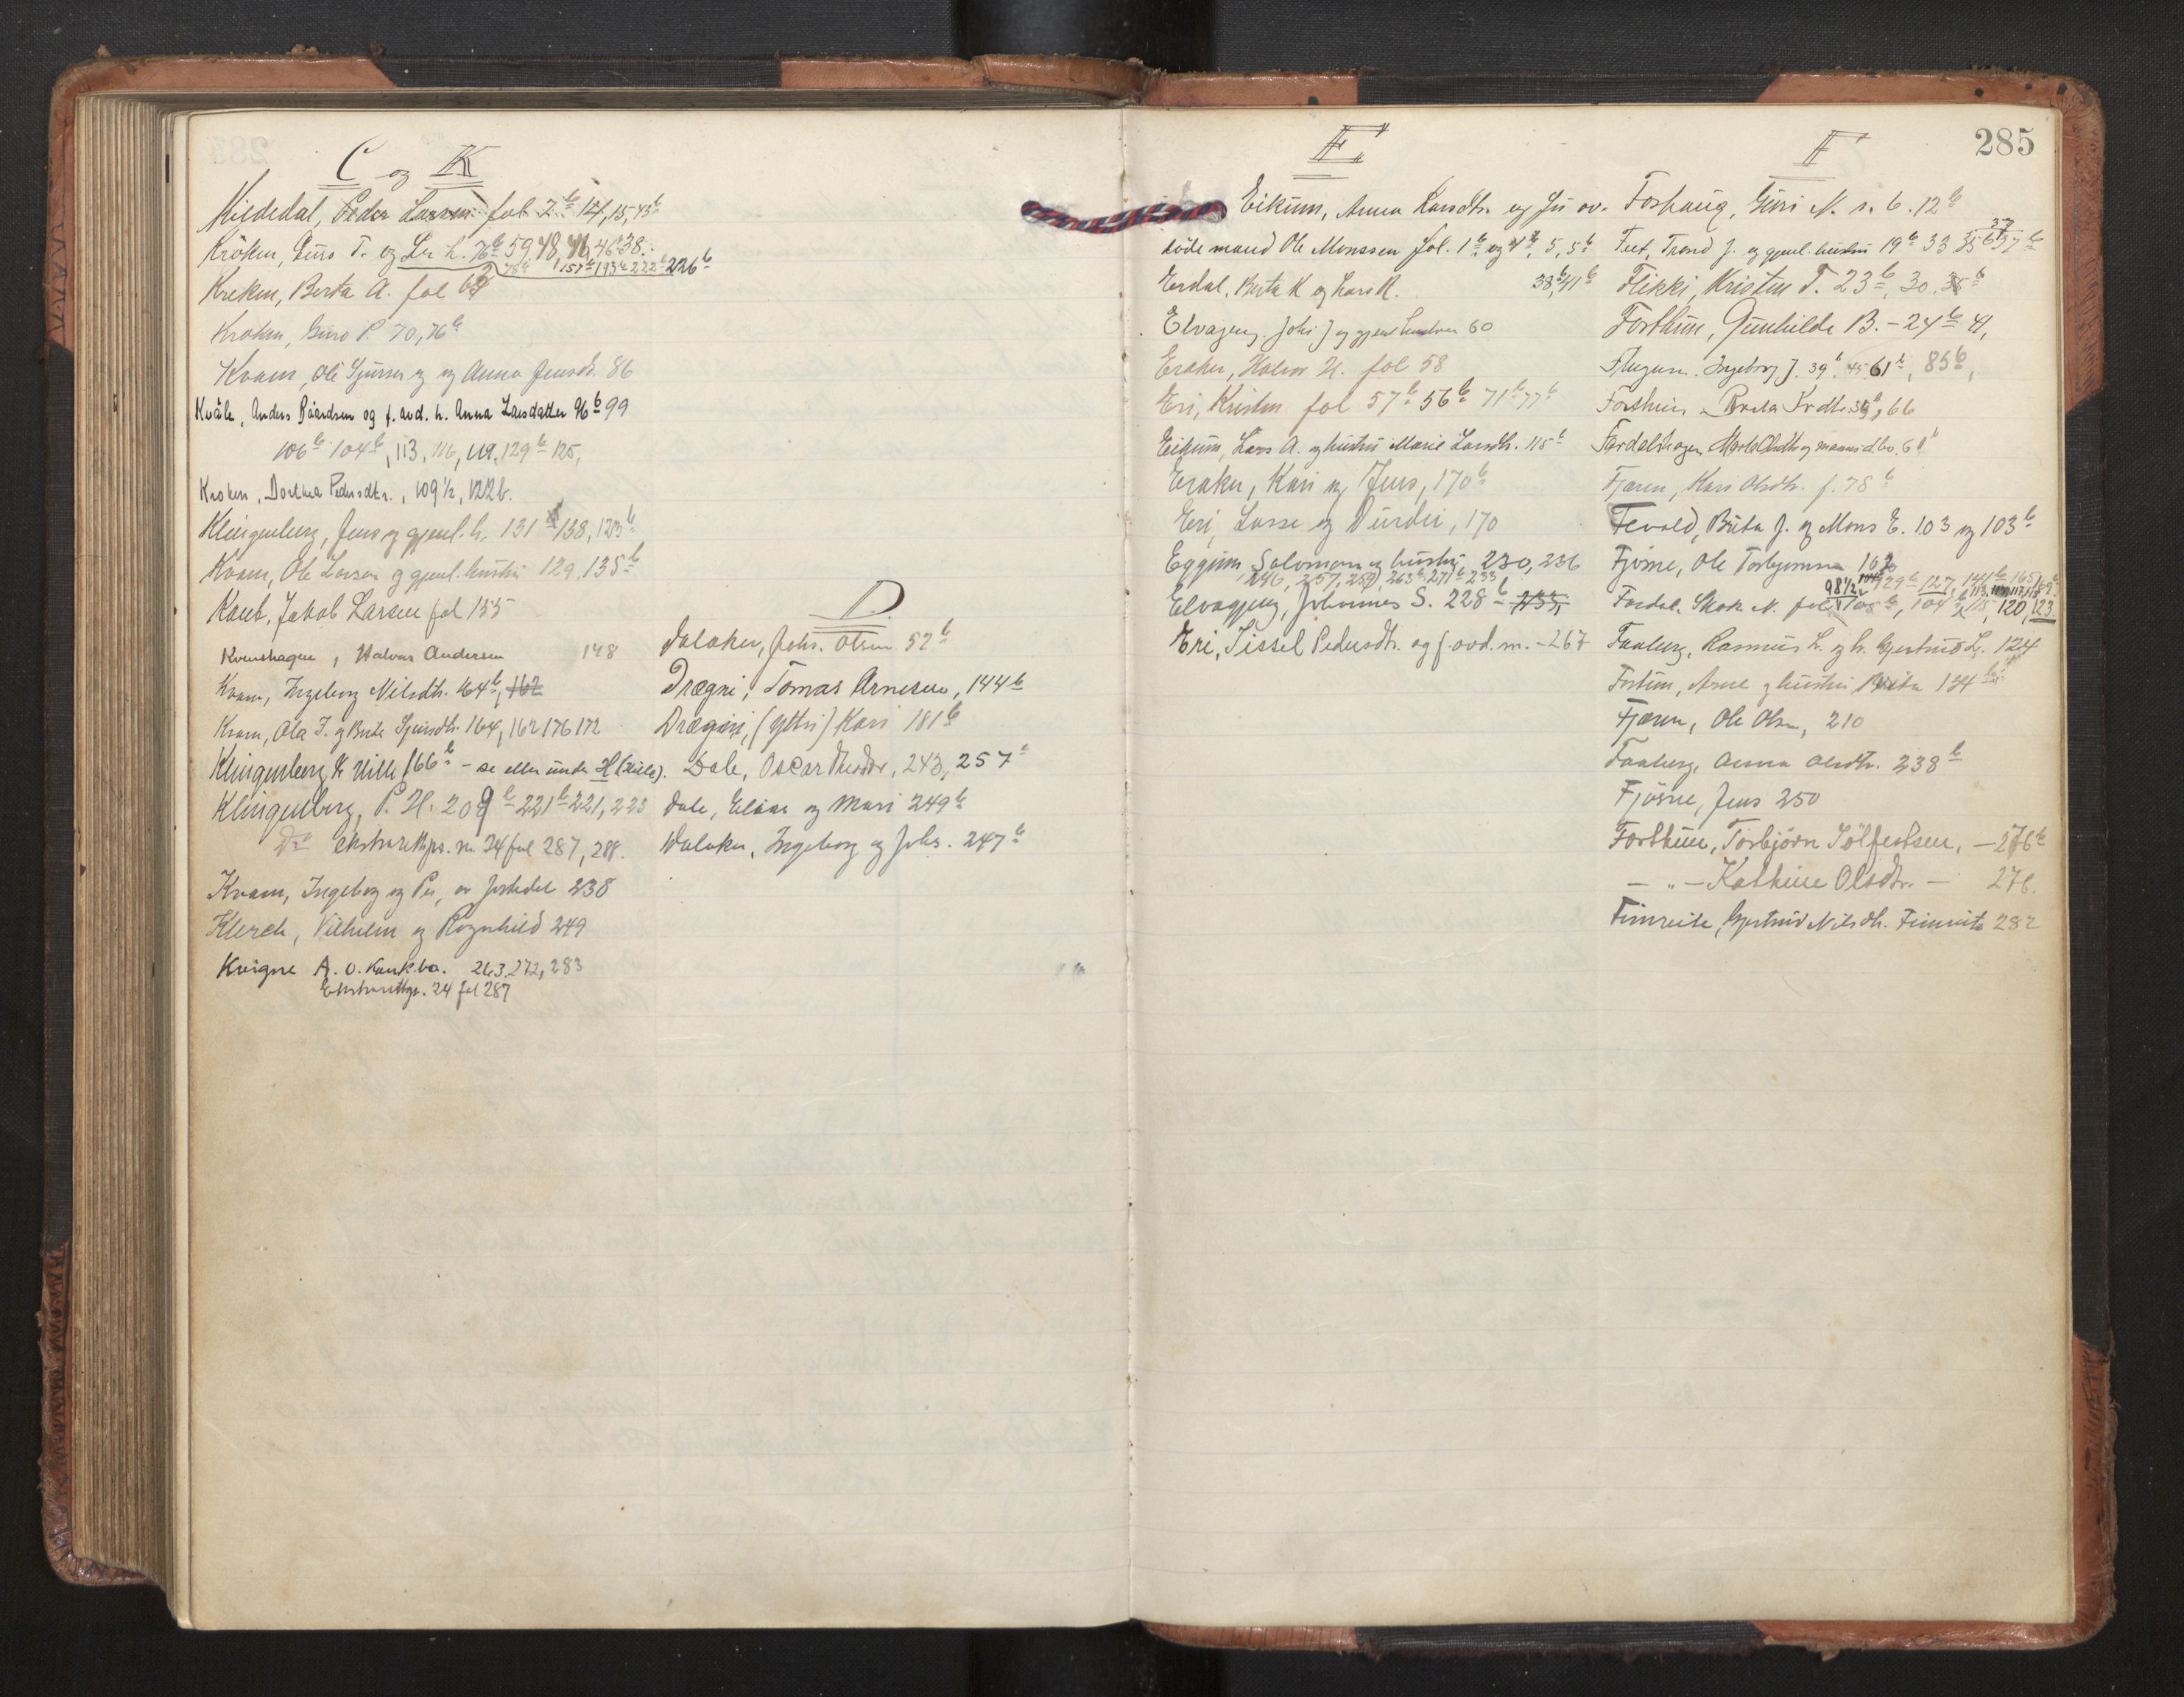 C og K
Kildedal, Peder Larsen fol 2b 14, 15, 43b
Kroken, Guro T. og Lr. L. 76b 59, 48, 46, 46b 38.
157b 193b 222b 226b
Kroken, Berta A. fol 63
Kroken, Guro P. 70, 76b
Kvam, Ole Sjursen og Anna Jensdtr. 86
Kvåle, Anders Baardsen og f. avd. h. Anna Larsdatter 96b 99
106b 104b, 113, 116, 119, 129b 125,
Kroken, Dorthea Pedersdtr., 109 1/2, 122b.
Klingenberg, Jens og gjenl. h. 131b 138, 123b
Kvam, Ole Larsen og gjenl. hustru 129, 135b
Kaub, Jakob Larsen fol 155
Kvenshagen, Halvar Andersen 148
Kvam, Ingeborg Nilsdtr. 164b, 162
Kvam, Ola J. og Brita Sjursdtr. 164, 162 176 172
Klingenberg & Hille 166b - se eller under H (Hille).
Klingenberg, P. H. 209b 221b 221, 223
Do ekstrarettspr. nr 24 fol 287, 288.
Kvam, Ingeborg og Per, av Jostedal 238
Klerck, Vilhelm og Ragnhild 249
Kvigne A. O. Konk.bo. 263, 272, 283
Ekstrarettspr. 24 fol 287
D.
Dalaker, Johs. Olsen 52b
Drægni, Tomas Arnesen, 144b
Drægni, (Yttri) Kari 181b
Dale, Oscar Theodor, 243, 257b
Dale, Elias og Mari 249b
Dalaker, Ingeborg og Johs. 247b
E
Eikum, Anna Larsdtr. og ju av-
døde mand Ole Monssen fol. 1b og 4b, 5, 5b
Erdal, Berta K og Lars K. 38b, 41b
Elvagjeng, Johs J og gjenl hustru 60
Eraker, Halvor H. fol 58
Eri, Kristen fol 57b 56b 71b 77b
Eikum, Lars A. og hustru Marie Larsdtr. 115b
Eraker, Kari og Jens, 170b
Eri, Lasse og Durdei, 170
Eggum, Salomon og hustru, 230, 236
246, 257, 259, 263b 271b 233
Elvagjeng, Johannes S. 228b 235,
Eri, Sissel Pedersdtr. og f. avd. m. - 267
F
285
Forhaug, Guri N. s. 6. 12b
Feet, Trond J. og gjenl. hustru 19b 33 35 37b
Flikki, Kristen T. 23b, 30, 38b
Forthun, Gunhilde B. - 24b 41,
Flugum, Ingeborg J. 39b 45 61b, 85b,
Forthun, Brita 66
Førdalshagen, Marta Olsdtr og manns d.bo. 61b
Fjæren, Kari Olsdtr. f. 78b
Fevold, Brita J. og Mons E. 103 og 103b
Fjøsne, Ole Torbjørnsen 162
98 1/2 129b 127, 141b 165
Fardal, Skak N. fol 105b, 104b, 115, 120, 123.
Faaberg, Rasmus L. og h. Gjertrud L. 124
Fortun, Arne og hustru Brita 134b
Fjæren, Ole Olsen, 210
Faaberg, Anna Olsdtr. 238b
Fjøsne, Jens 250
Forthun, Torbjørn Sølfestsen, - 276b
- " - Kathrine Olsdtr. - 276.
Fimreite, Gjertrud Nilsdtr. Fimreite 282